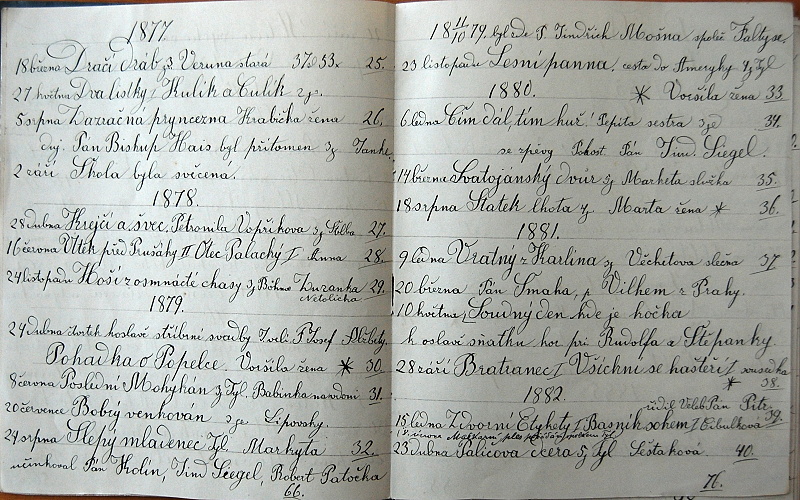 1877.
18 března Dračí dráb, 3 Veruna stará 37d 53x 25.
27 května Dva lístky / Kulík a Čulík 2 je.
5 srpna Zázračná pryncezna Krabička žena 26.
Pán Biskup Hais byl přítomen 3j Janke.
2 září Škola byla svěcena.
1878.
28 dubna Krejčí a švec, Petronila Vopříkova 3j Stilba 27.
16 června Útěk před Prušáky II Otec Palacký I Anna 28.
24 listopadu Hoši z osmnácté chasy 3j Böhm Zuzanka 29.
Netolička
1879.
24 dubna čtvrtek k oslavě stříbrné svadby F. Josef Alžběty.
Pohádka o Popelce. Voršila žena * 30.
8 června Poslední Mohykán 3j Tyl. Babinka 31.
20 července Bobrý venkován 2 je Lipovský.
24 srpna Slepý mládenec Tyl Markyta 32.
učinkoval Pán Kolín, Jind Siegel, Robert Patočka
66.
18 11/10 79. byl zde P. Jindřich Mošna společ Faltyse.
23 listopadu Lesní panna, cesta do Ameryky 4j Tyl
1880. * Voršila žena 33.
6 ledna Čím dál, tím huř! Pepita sestra 3je 34.
se zpěvy Pokost. Pán Jind. Siegel.
14 března Svatojánský dvůr 3j Marketa služka 35.
18 srpna Statek lhota 4j. Marta žena * 36.
1881.
9 ledna Vratný z Karlína 3j Věchetova slečna 37
20 března Pán Smaha, p Vilhem z Prahy.
10 května Soudný den, kde je kočka
k oslavě sňatku kor pri Rudolfa a Štěpanky.
28 září Bratranec / Všichni se hašteří / sousedka
* 38.
1882.
řídil Veleb Pán Petr
15 ledna Zdvorní Etykety / Básník sokem / Cibulková 39.
23 dubna Palicova dcera 5j Tyl Šestaková. 40.
76.